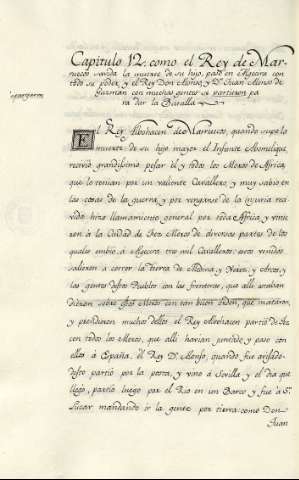 Capitulo 12. como el Rey de Mar-
ruecos savida la muerte de su hijo, pasò en Algecira con
todo su poder, y el Rey Don Alonso, y Dn. Juan Alonso de
Guzman con muchas gentes se partieron pa
ra dar la Batalla
aparejaron
El Rey Albohacen de Marruecos, quando supo la
muerte de su hijo mayor el Infante Abomelique,
recivio grandissimo pesar èl y todos los Moros de Africa,
que lo tenian por un valiente Cavallero, y muy sabio en
las cosas de la guerra, y por vengarse de la injuria rece
vida hizo llamamiento general por toda Africa, y vinie
ron à la Ciudad de Fez Moros de diversas partes de los
quales embiò à Algecira tres mil Cavalleros: estos venidos
salieron à correr la tierra de Medina, y Xerez, y Arcos, y
las gentes destos Pueblos con las fronteras, que alli estaban
dieron sobre estos Moros con tan buen orden, que mataron,
y prendieron muchos dellos el Rey Albohacen partiò de Fez
con todos los Moros, que alli havian juntado y paso con
ellos à España, el Rey Dn. Alonso, quando fue avisado
desto partio por la posta, y vino à Sevilla y el dia que
llegò, partio luego por el Rio en un Barco y fue à S.
Lucar mandando ir la gente por tierra como Don
Juan